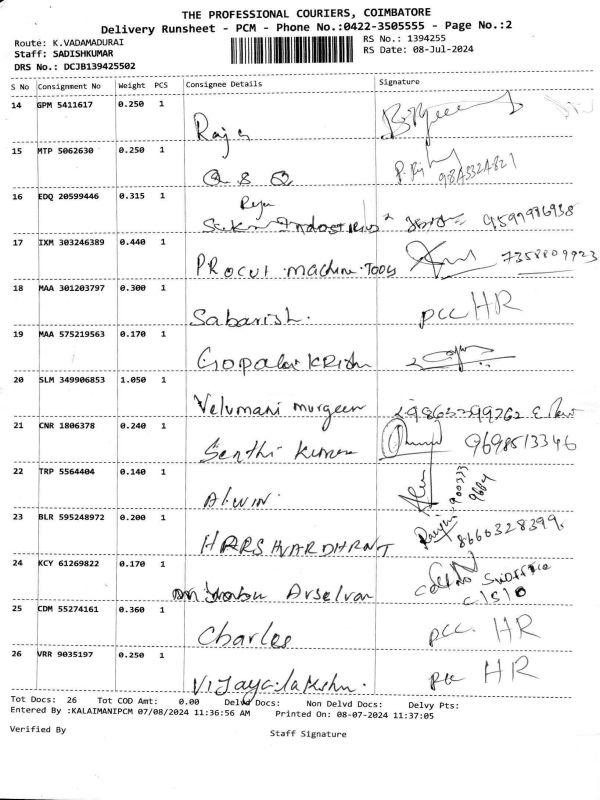 THE PROFESSIONAL COURIERS, COIMBATORE
Delivery Runsheet - PCM - Phone No.:0422-3505555 - Page No.:2
Route: K.VADAMADURAI RS No.: 1394255
Staff: SADISHKUMAR RS Date: 08-Jul-2024
DRS No.: DCJB139425502
S No Consignment No Weight PCS Consignee Details Signature
14 GPM 5411617 0.250 1
Raja
15 MTP 5062630 0.250 1
Q & Q
16 EDQ 20599446 0.315 1
9597996938
17 IXM 303246389 0.440 1
Procut machine Tools 7358809923
18 MAA 301203797 0.300 1
Sabarish. pcc HR
19 MAA 575219563 0.170 1
Gopala Krish
20 SLM 349906853 1.050 1
Velumani murgeen
21 CNR 1806378 0.240 1
Senthi Kumar 9698513346
22 TRP 5564404 0.140 1
Alwin.
23 BLR 595248972 0.200 1
HARSHVARDHANT 8660328399.
24 KCY 61269822 0.170 1
Arselvan C/S/O
25 CDM 55274161 0.360 1
Charles pcc. HR
26 VRR 9035197 0.250 1
Vijaya.lakshm. pcc HR
Tot Docs: 26 Tot COD Amt: 0.00 Delvd Docs: Non Delvd Docs: Delvy Pts:
Entered By :KALAIMANIPCM 07/08/2024 11:36:56 AM Printed On: 08-07-2024 11:37:05
Verified By Staff Signature